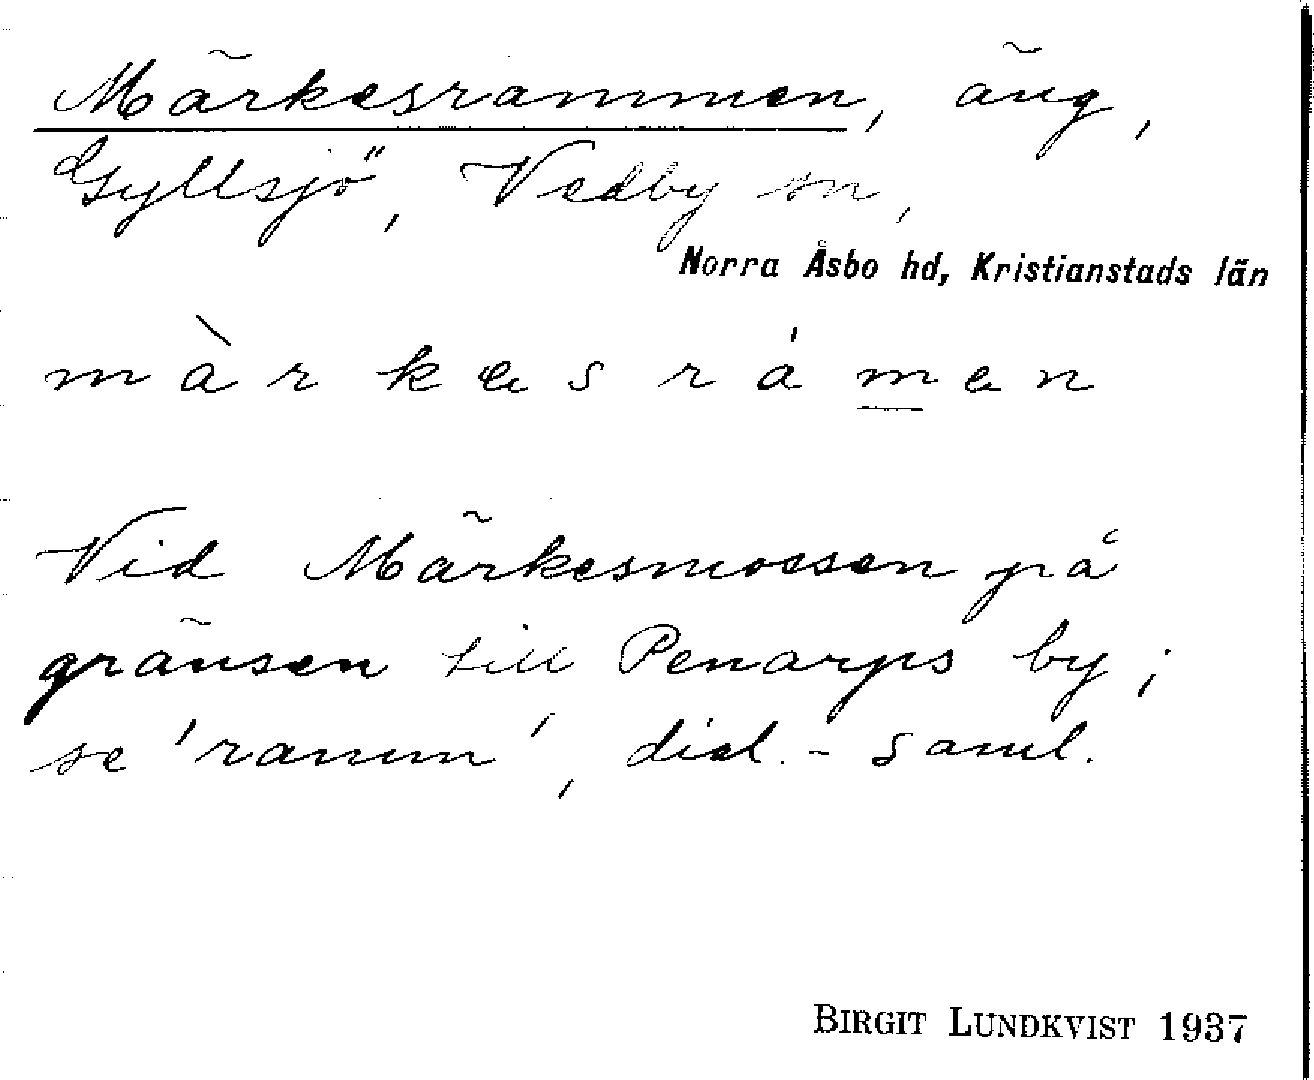 Märkesrammen, äng,
Gyllsjö, Vedby sn,
Norra Åsbo hd, Kristianstads län
màrkæsrámen
Vid Märkesmossen på
gränsen till Penarps by;
se 'ramm', dial.-saml.
BIRGIT LUNDKVIST 1937